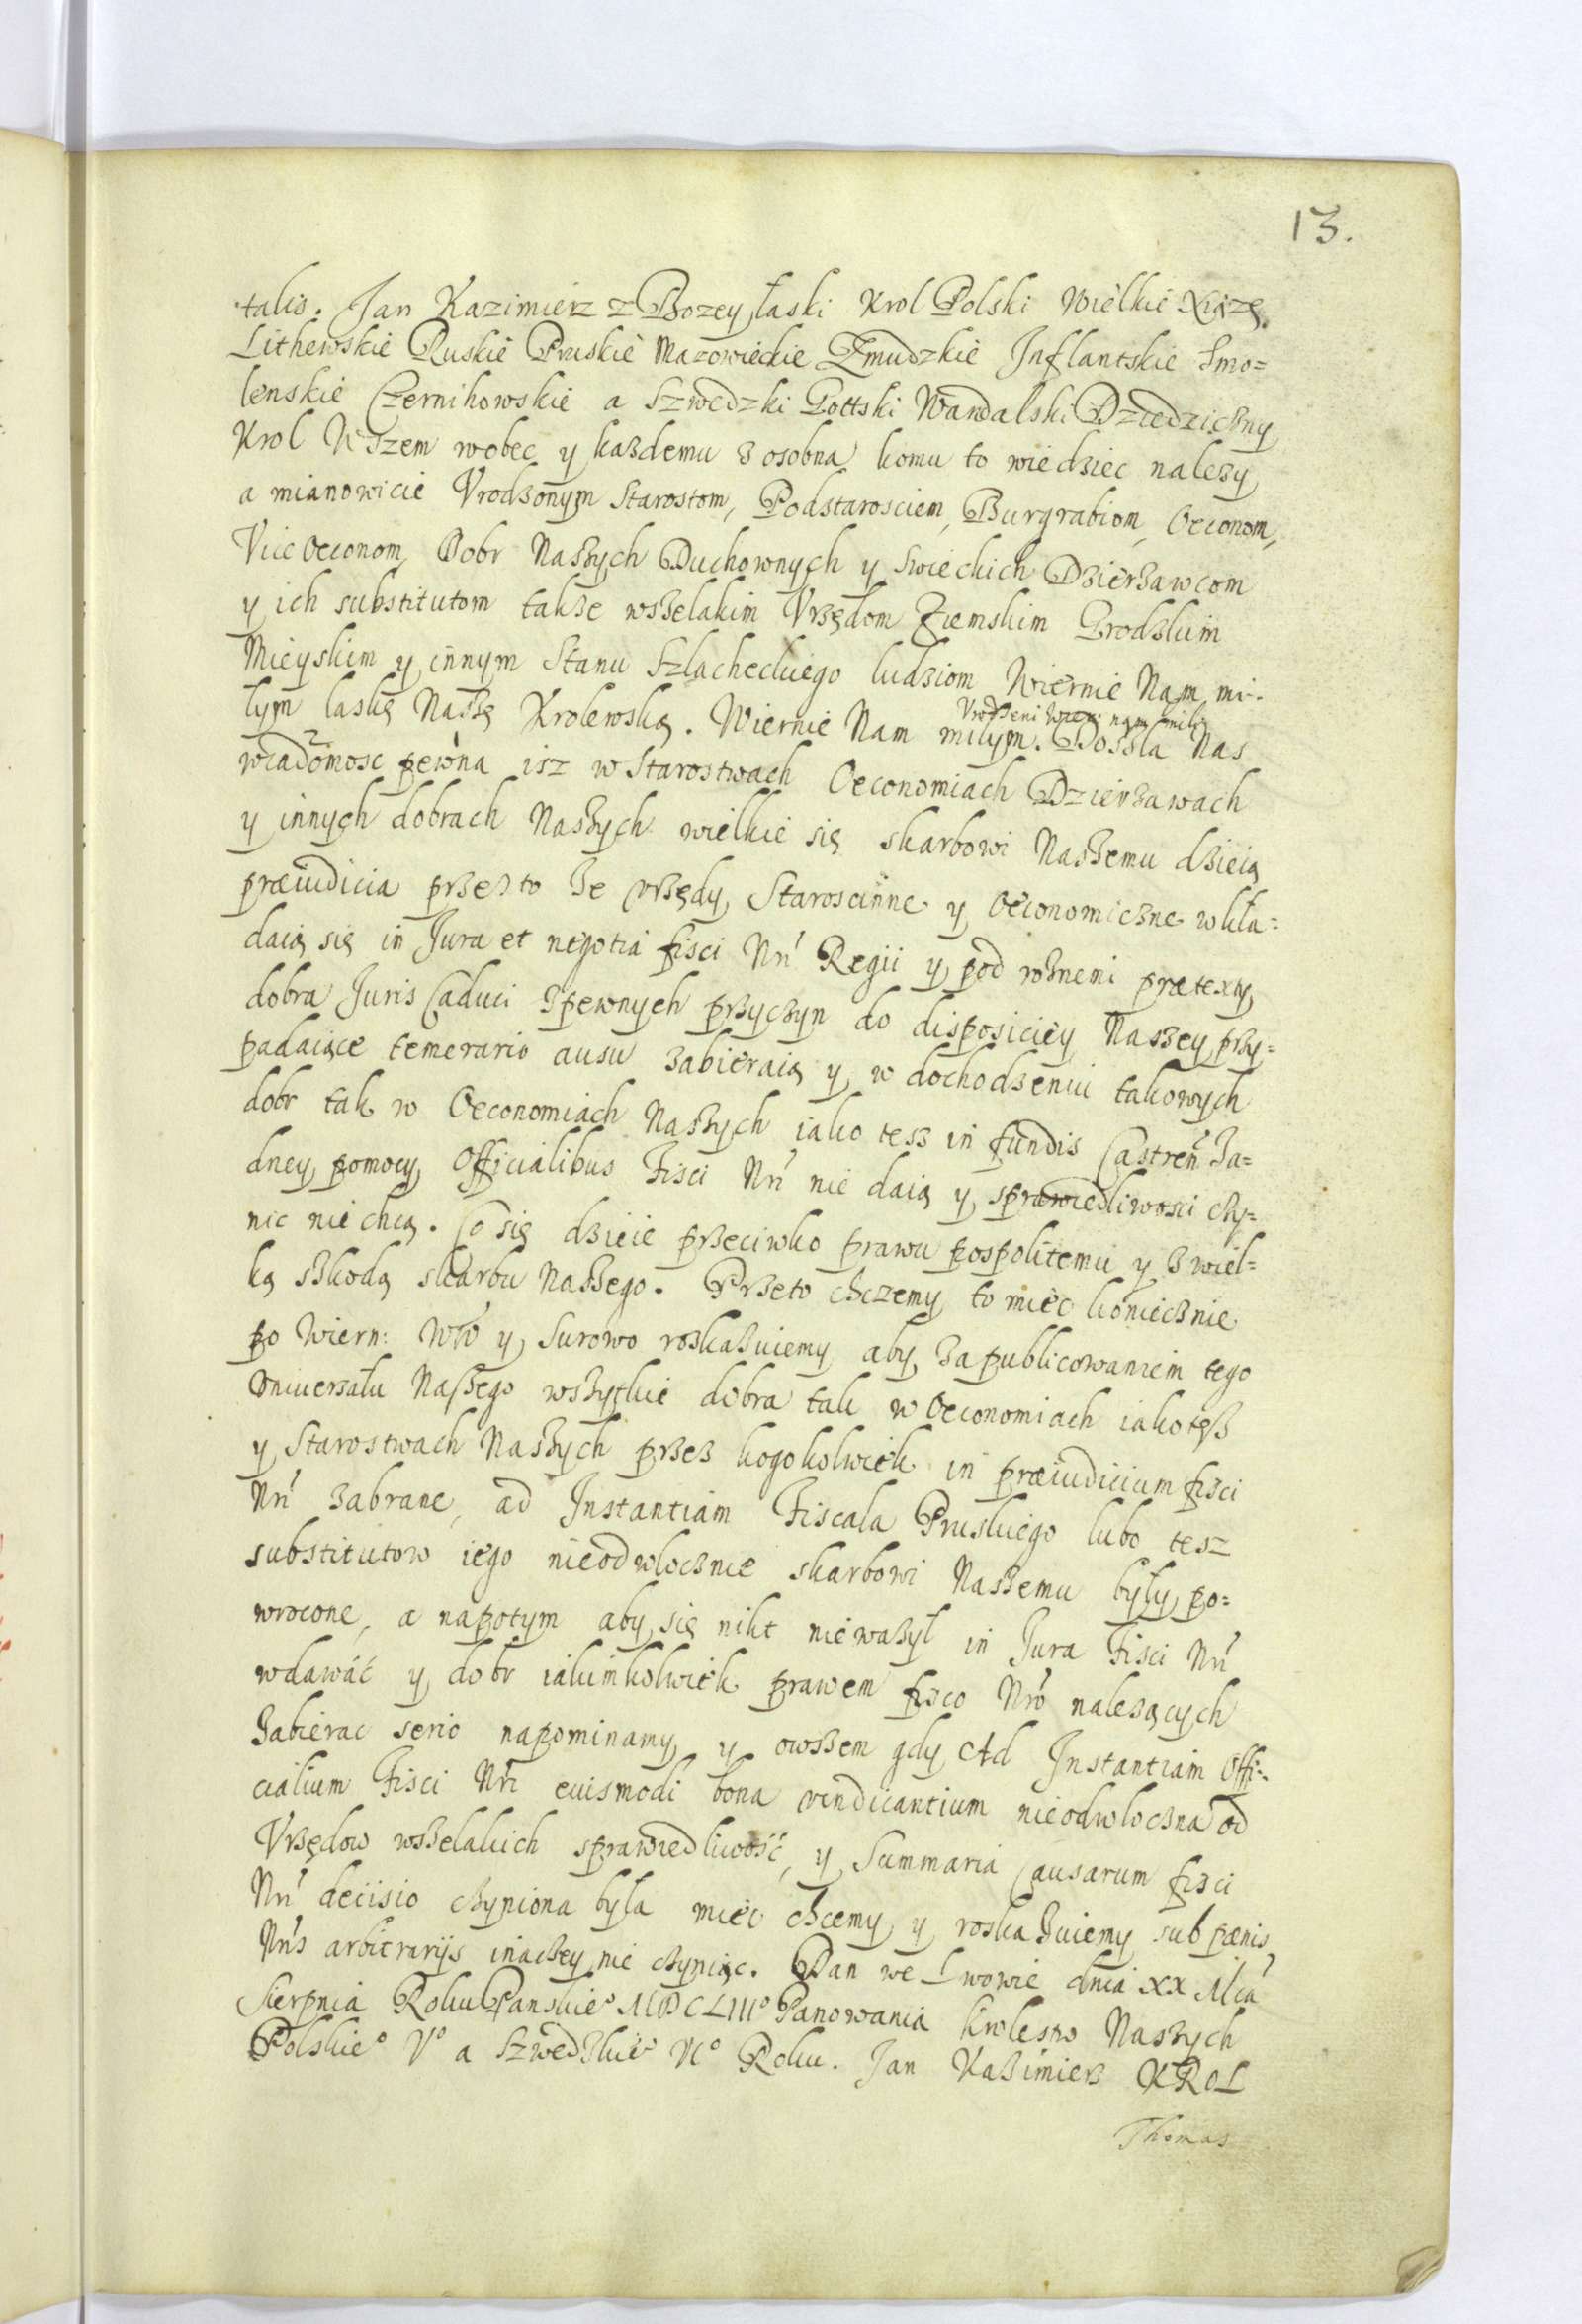 13.
talis. Jan Kazimierz z Bozey łaski Krol Polski Wielkie Xiązę
Lithewskie Ruskie Pruskie Mazowieckie Zmudzkie Inflantskie Smo=
lenskie Czernihowskie a Szwedzki Gottski Wandalski Dziedziczny
Krol Wszem wobec y kazdemu zosobna komu to wiedziec nalezy
a mianowicie Vrodzonym Starostom, Podstarosciem, Burgrabiom, Oeconom,
Vice Oeconom, Dobr Naszych Duchownych y Swieckich Dzierzawcom
y ich substitutom takze wszelakim Vrzędom Ziemskim Grodzkim
Mieyskim y innym Stanu Szlacheckiego ludziom Wiernie Nam mi-
łym laskę Naszę Krolewską. Wiernie Nam milym. Doszla Nas
Vrodzeni Wier: nam mili
wiadomosc pewna isz w Starostwach Oeconomiach Dzierzawach
y innych dobrach Naszych wielkie się skarbowi Naszemu dzieią
præiudicia przez to ze vrzędy Staroscinne y Oeconomiczne wkła=
daią się in Jura et negotia fisci Nri Regii y pod roznemi prætexty
dobra Juris Caduci zpewnych przyczyn do disposiciey Naszey przy=
padaiące temerario ausu zabieraią y w dochodzeniu takowych
dobr tak w Oeconomiach Naszych iako tesz in fundis Castren Za=
dney pomocy Officialibus Fisci Nri nie daią y sprawiedliwosci czy=
nic nie chcą. Co się dzieie przeciwko prawu pospolitemu y z wiel=
ką szkodą skarbu Naszego. Przeto chczemy to miec koniecznie
po Wiern: WW y Surowo roskazuiemy aby zapublicowaniem tego
Vniuersału Naszego wszytkie dobra tak w Oeconomiach iakotesz
y Starostwach Naszych przez kogokolwiek in præiudicium fisci
Nri zabrane, ad Instantiam Fiscala Pruskiego lubo tesz
substitutow iego nieodwlocznie skarbowi Naszemu były po=
wrocone, a napotym aby się nikt niewazył in Jura Fisci Nri
wdawáć y dobr iakimkolwiek prawem fisco Nro nalezących
Zabierac serio napominamy y owszem gdy Ad Instantiam Offi-
cialium Fisci Nri eiusmodi bona vindicantium nieodwloczna od
Vrzędow wszelakich sprawiedliwość, y Summaria Causarum fisci
Nri decisio czyniona była miec chcemy y roskazuiemy sub pœnis
Nris arbitrarijs inaczey nie czyniąc. Dan we Lwowie dnia XX Mca
Sierpnia Roku Panskieo MDCLIIIo Panowania Krolestw Naszych
Polskieo Vo a Szwedzkieo VIo Roku. Jan Kazimierz KROL
Thomas